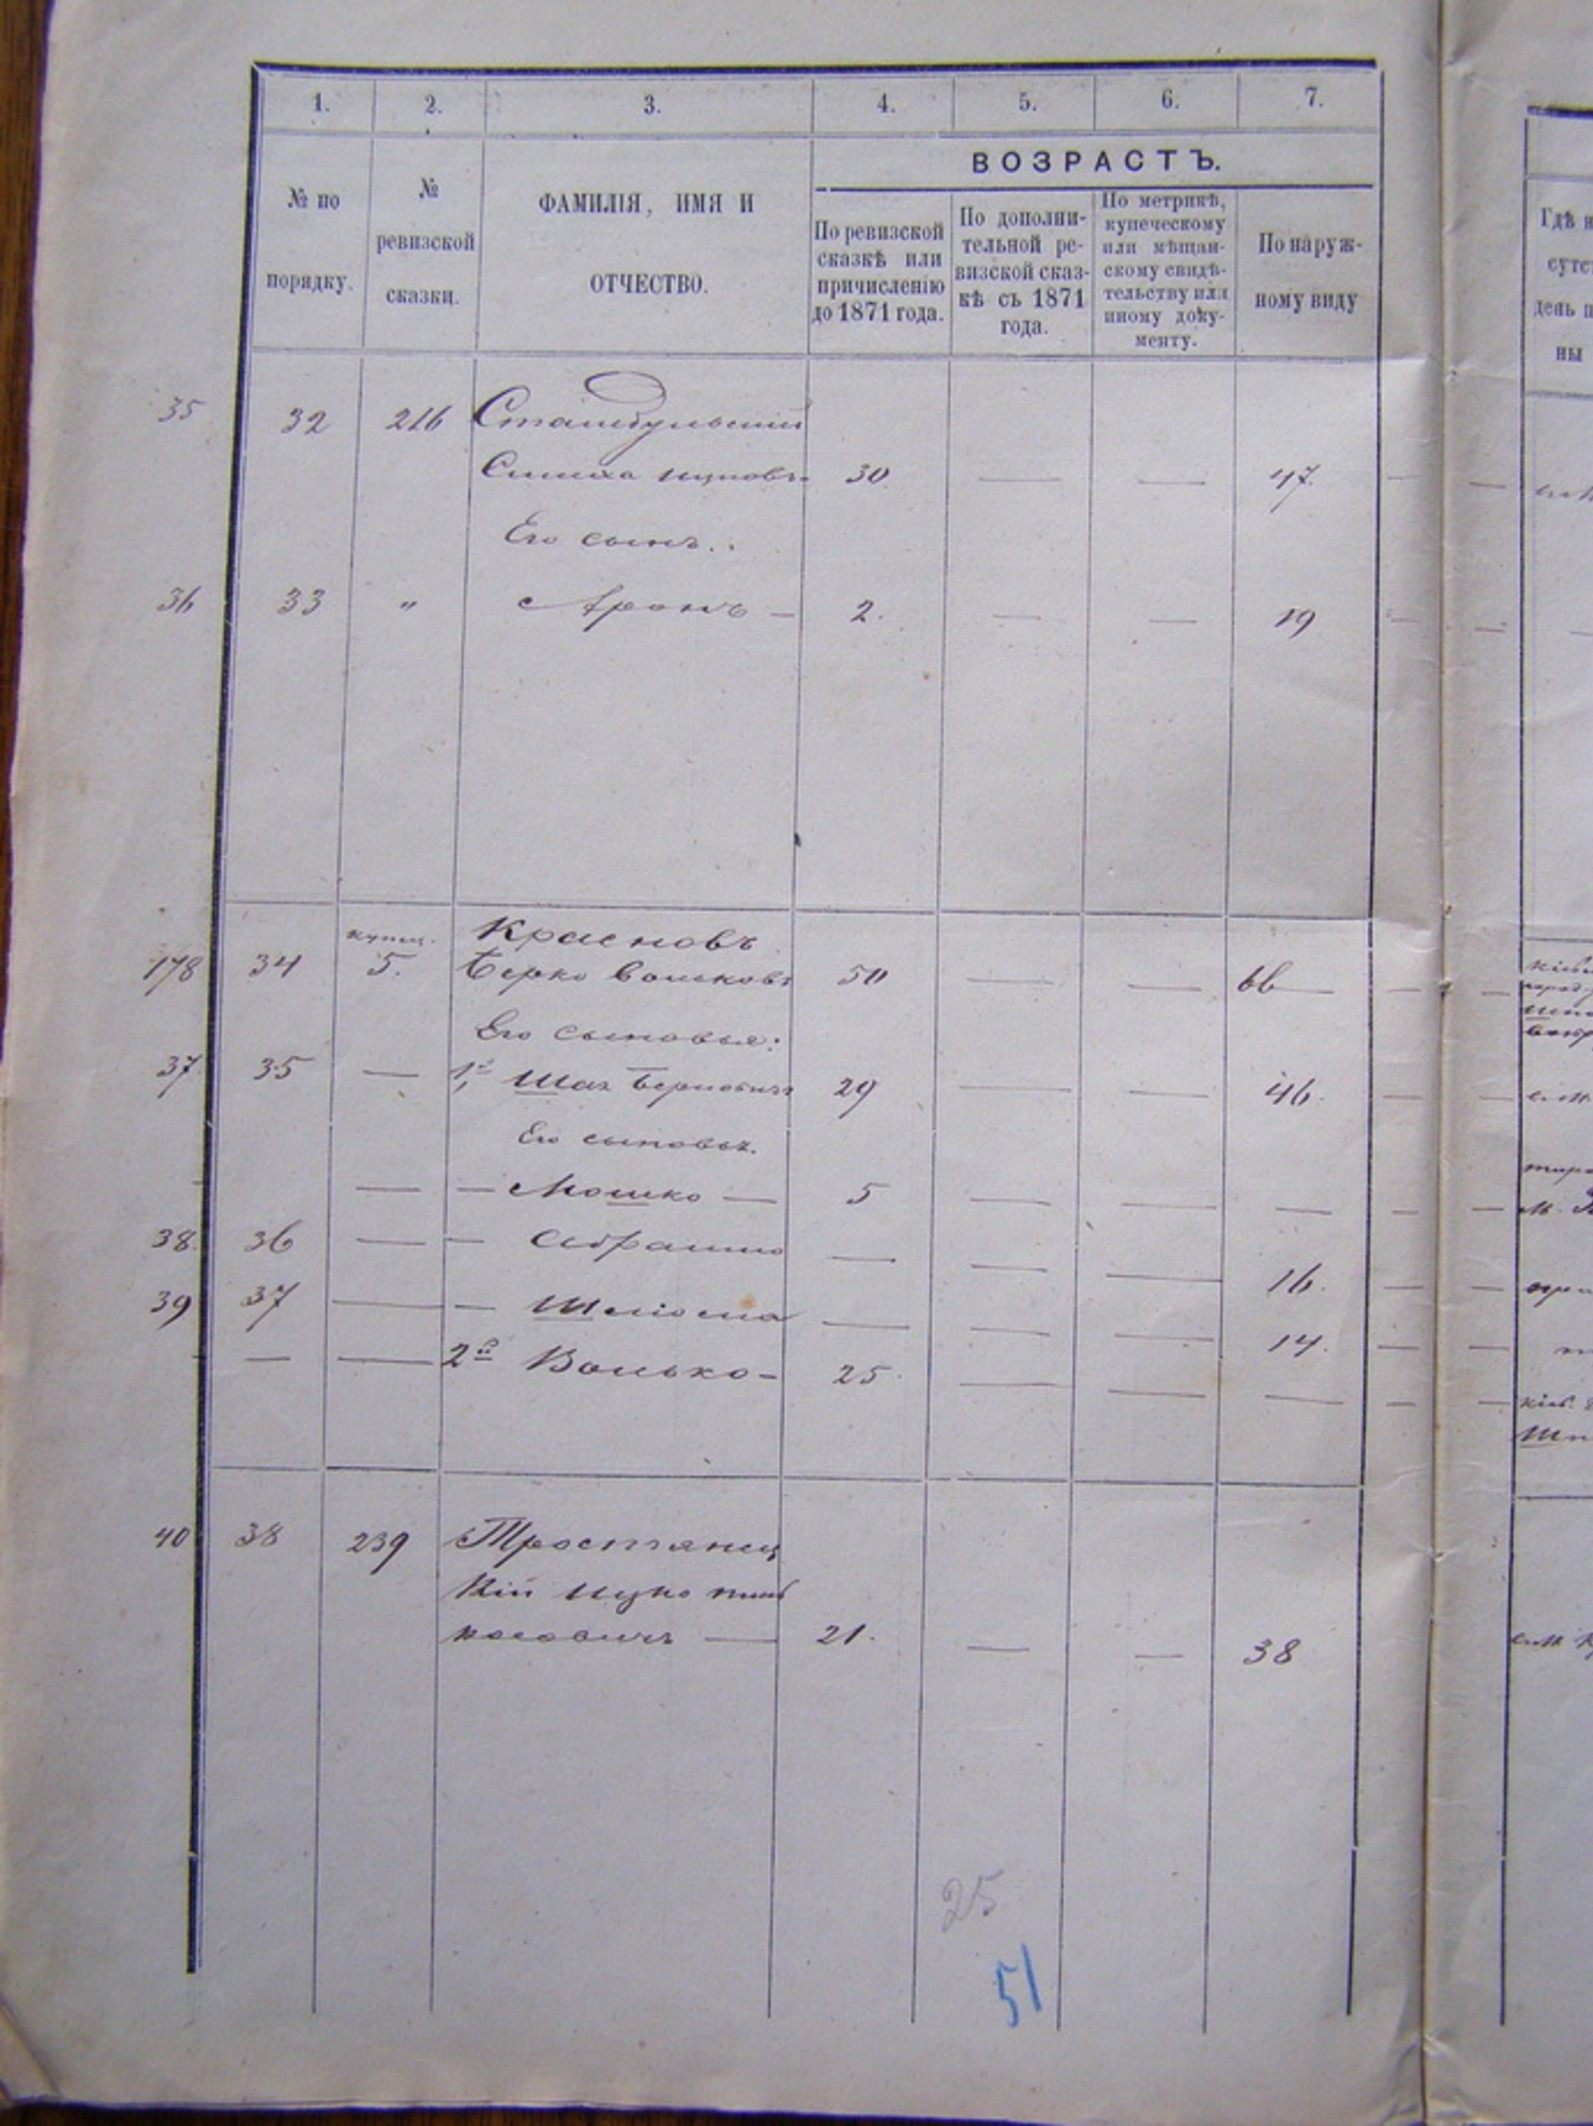 1. 2. 3. 4. 5. 6. 7.
ВОЗРАСТЪ.
№ по
порядку.
№
ревизской
сказки.
ФАМИЛІЯ, ИМЯ И
ОТЧЕСТВО.
По ревизской
сказкѣ или
причисленію
до 1871 года.
По дополни-
тельной ре-
визской сказ-
кѣ съ 1871
года.
По метрикѣ,
купеческому
или мѣщан-
скому свидѣ-
тельству или
иному доку-
менту.
По наруж-
ному виду
35 32 216
30 — — 47.
Его сынъ..
36 33 " Аронъ — 2. — — 19
купец. Красновъ
178 34 5. Берко Вольковъ 50 — — 66 —
Его сыновья:
37. 35 — 1й Шая Берковичъ 29 — — 46.
Его сыновья.
— — Мошко — 5 — — —
38. 36 — — Абрамко — — — 16.
39 37 — — Шліома — — — 14.
— — 2й Волько - 25. — — —
40 38 239 Тростянец
кій Ицко
21. — — 38
25
51
Гдѣ
день
ны